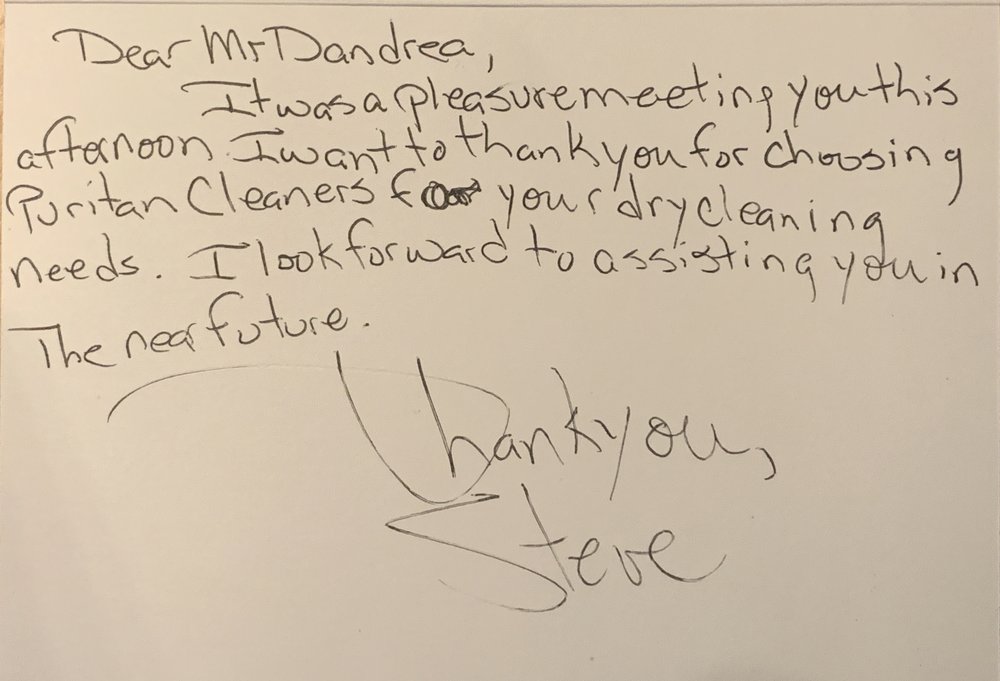 Dear Mr Dandrea,
It was a pleasure meeting you this
afternoon. I want to thank you for choosing
Puritan Cleaners for your dry cleaning
needs. I look forward to assisting you in
The near future.
Thank you,
Steve